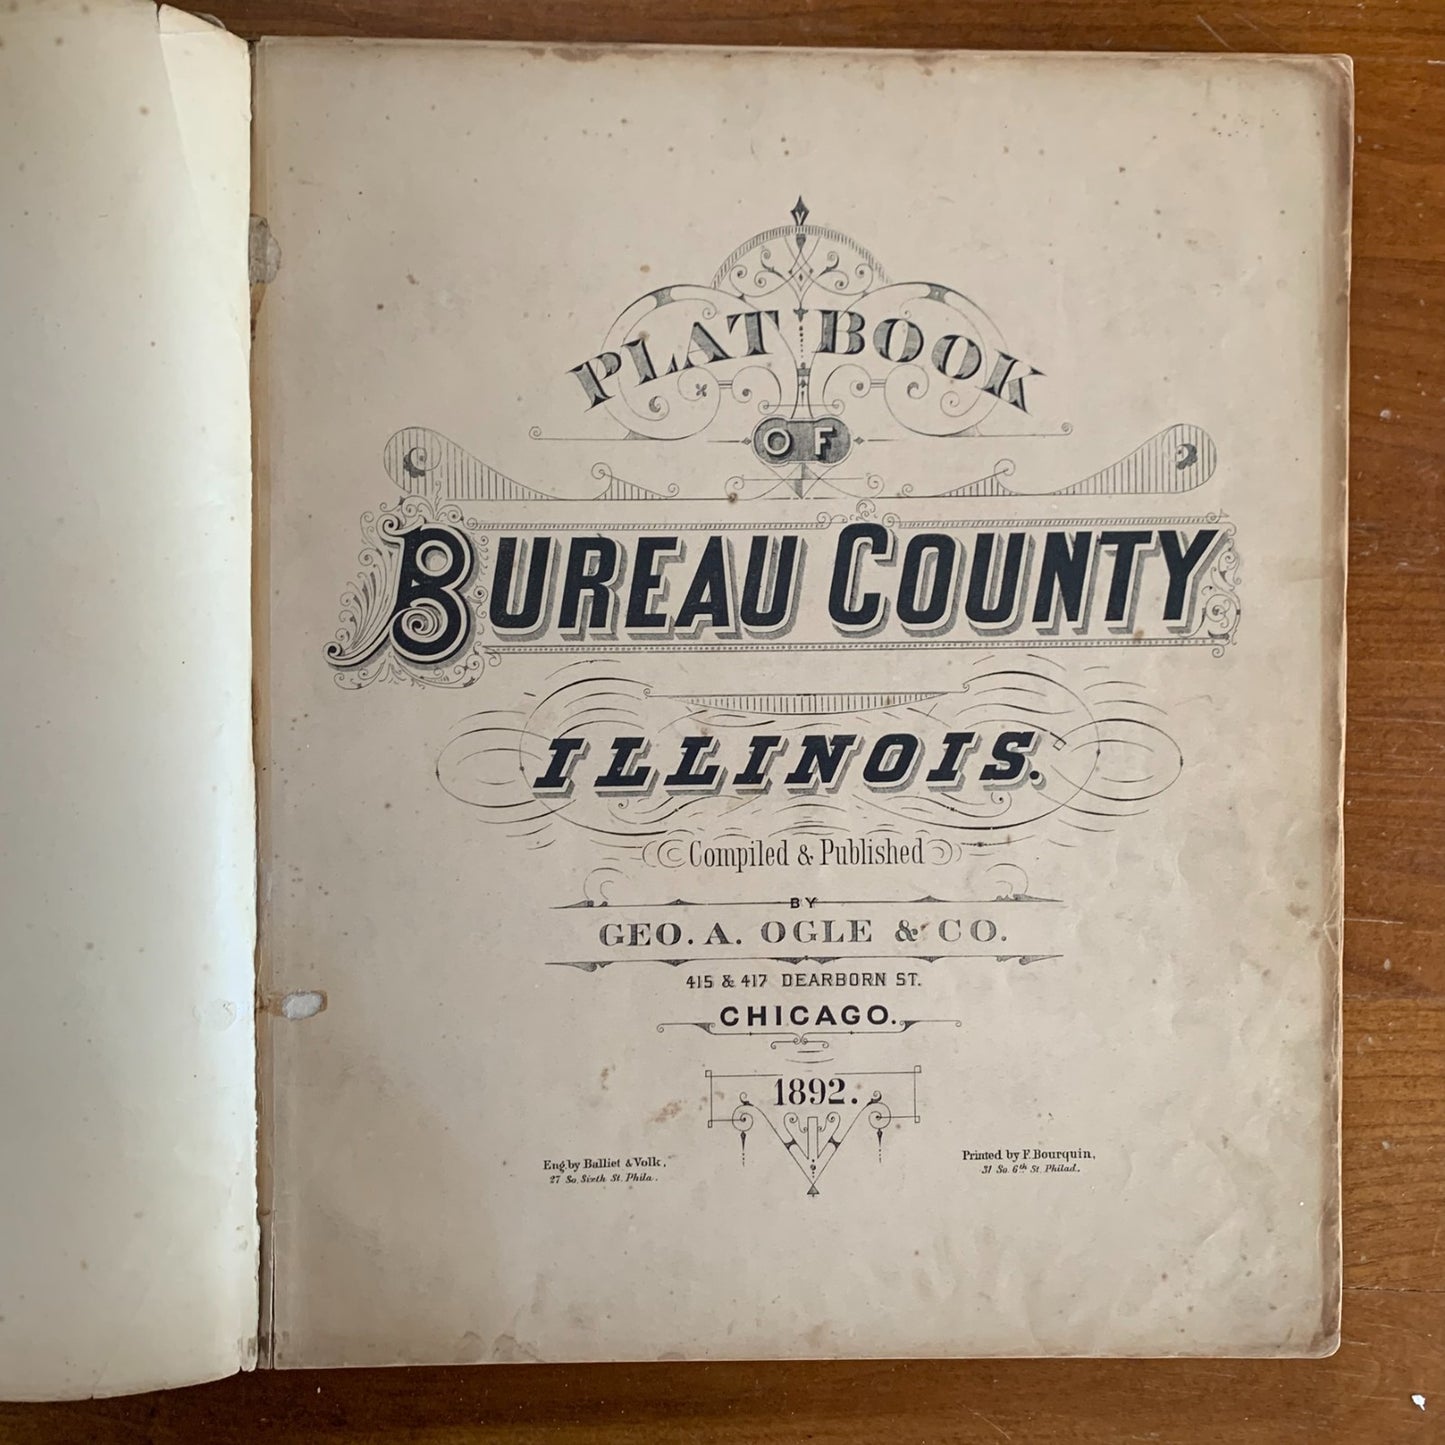 PLAT BOOK
OF
BUREAU COUNTY
ILLINOIS.
Compiled & Published
BY
GEO. A. OGLE & CO.
415 & 417 DEARBORN ST.
CHICAGO.
1892.
Eng. by Balliet & Volk,
27 So. Sixth St. Phila.
Printed by F. Bourquin,
31 So. 6th St. Philad.